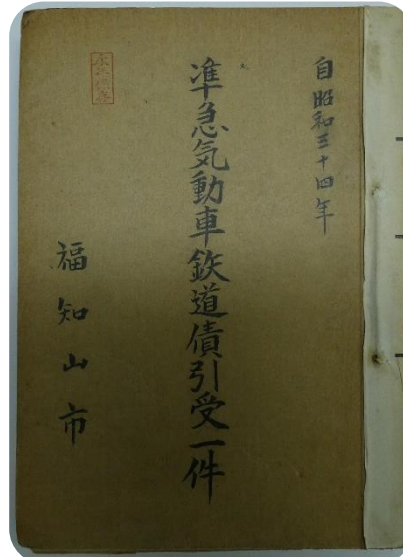 自昭和三十四年
準急気動車鉄道債引受一件
福知山市